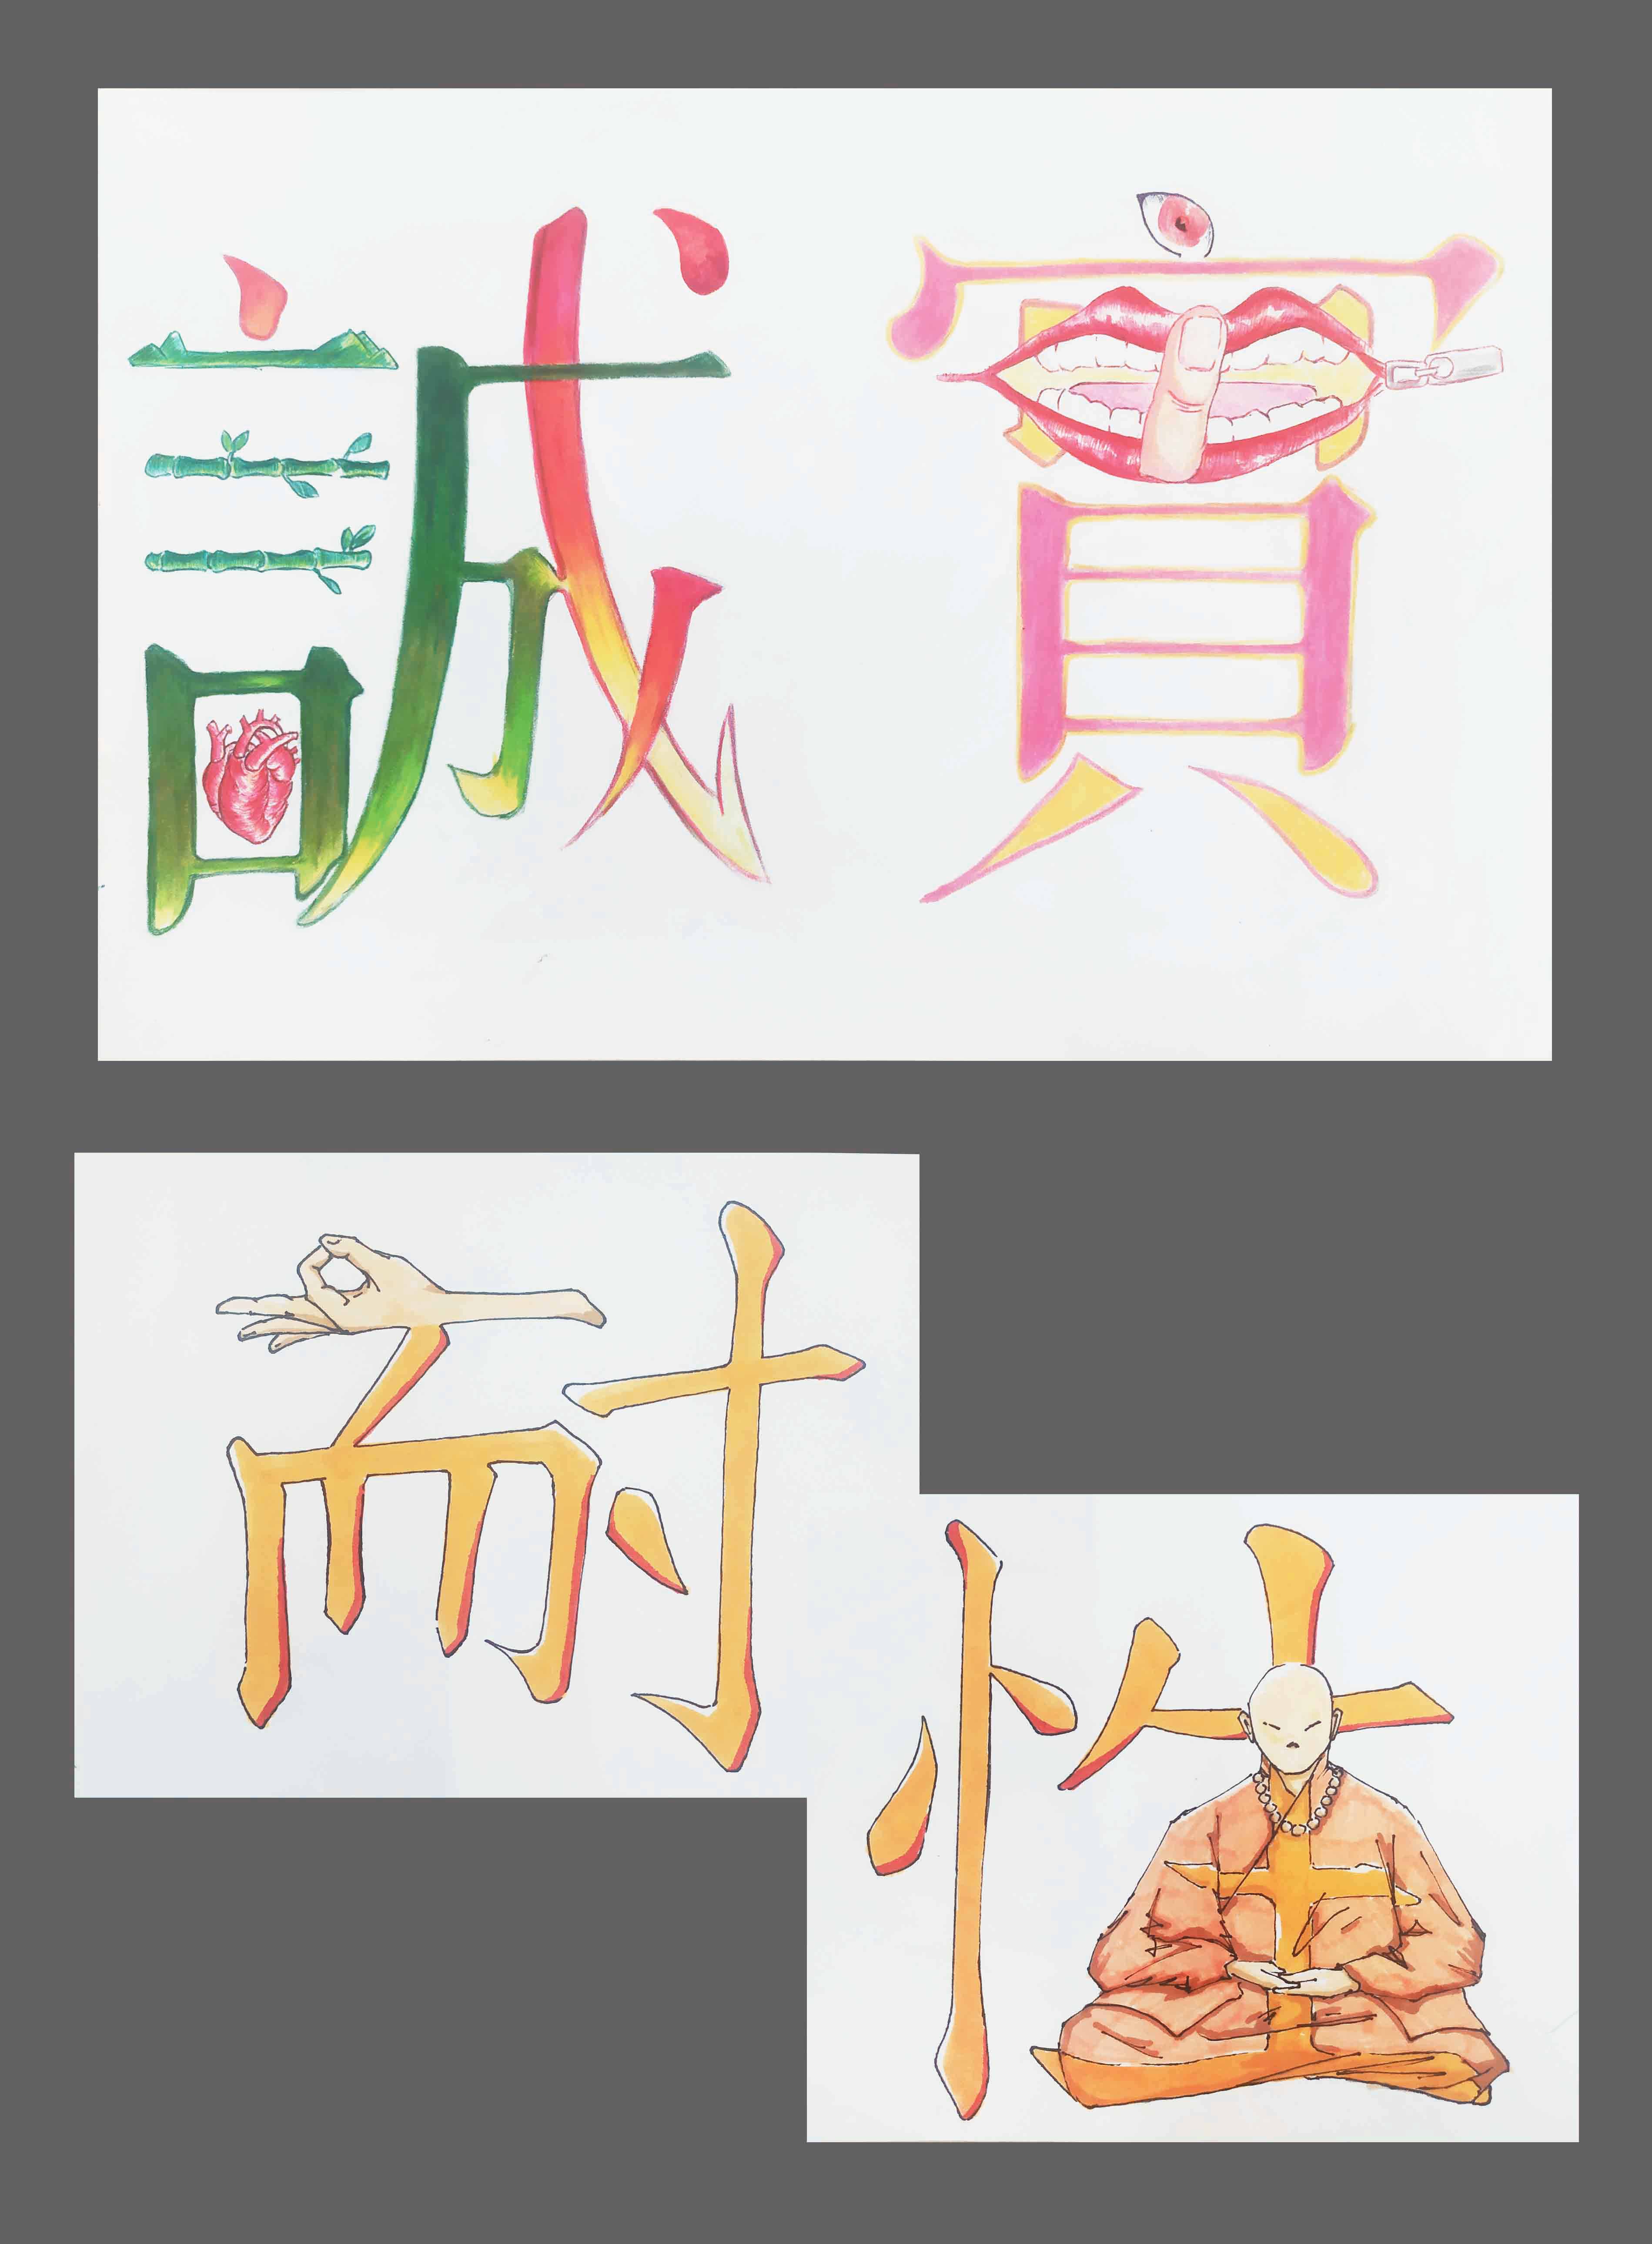 誠實
耐
性